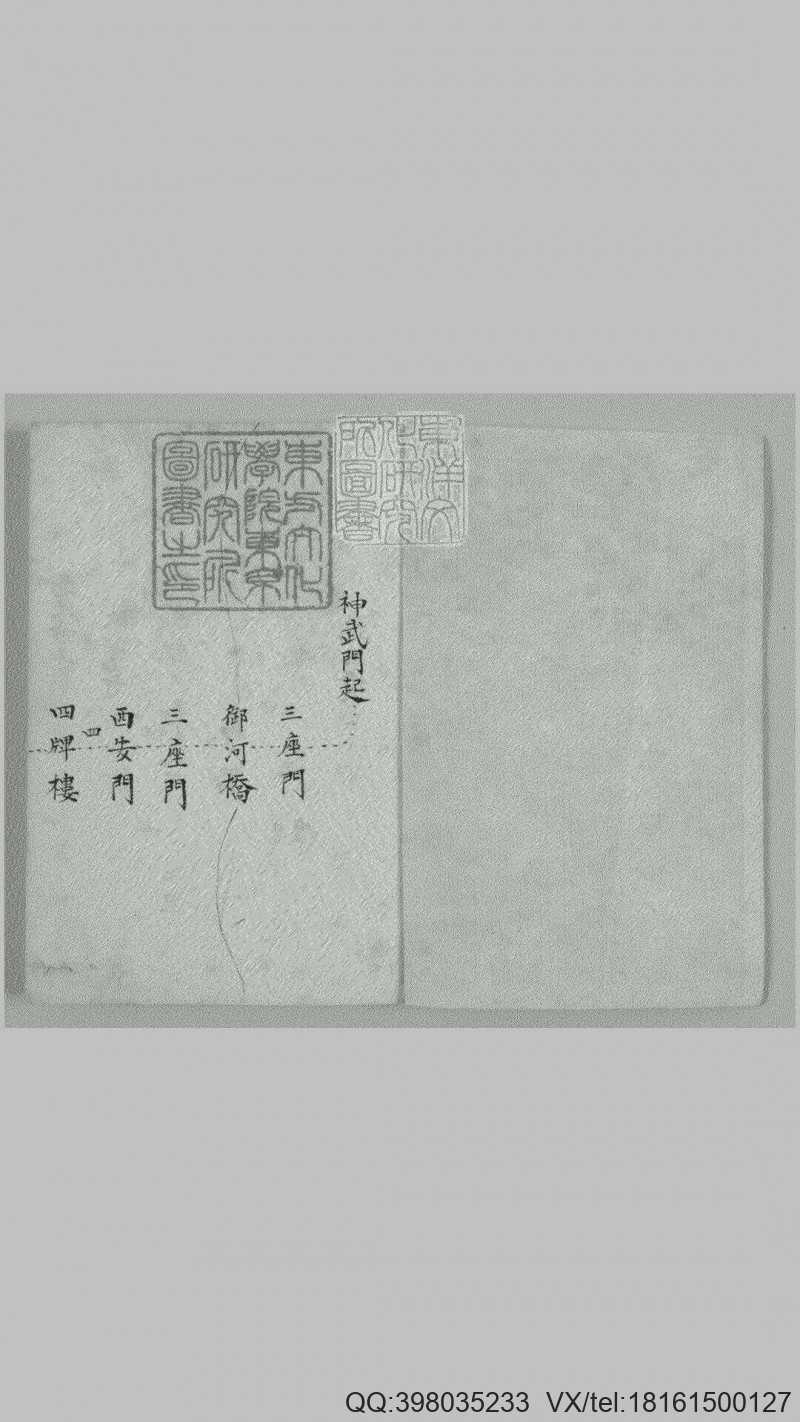 東洋文
化研究
所圖書
神武門起
三座門
御河橋
三座門
西安門
四
四牌樓
東方文化
學院東京
研究所
圖書之印
QQ:398035233 VX/tel:18161500127